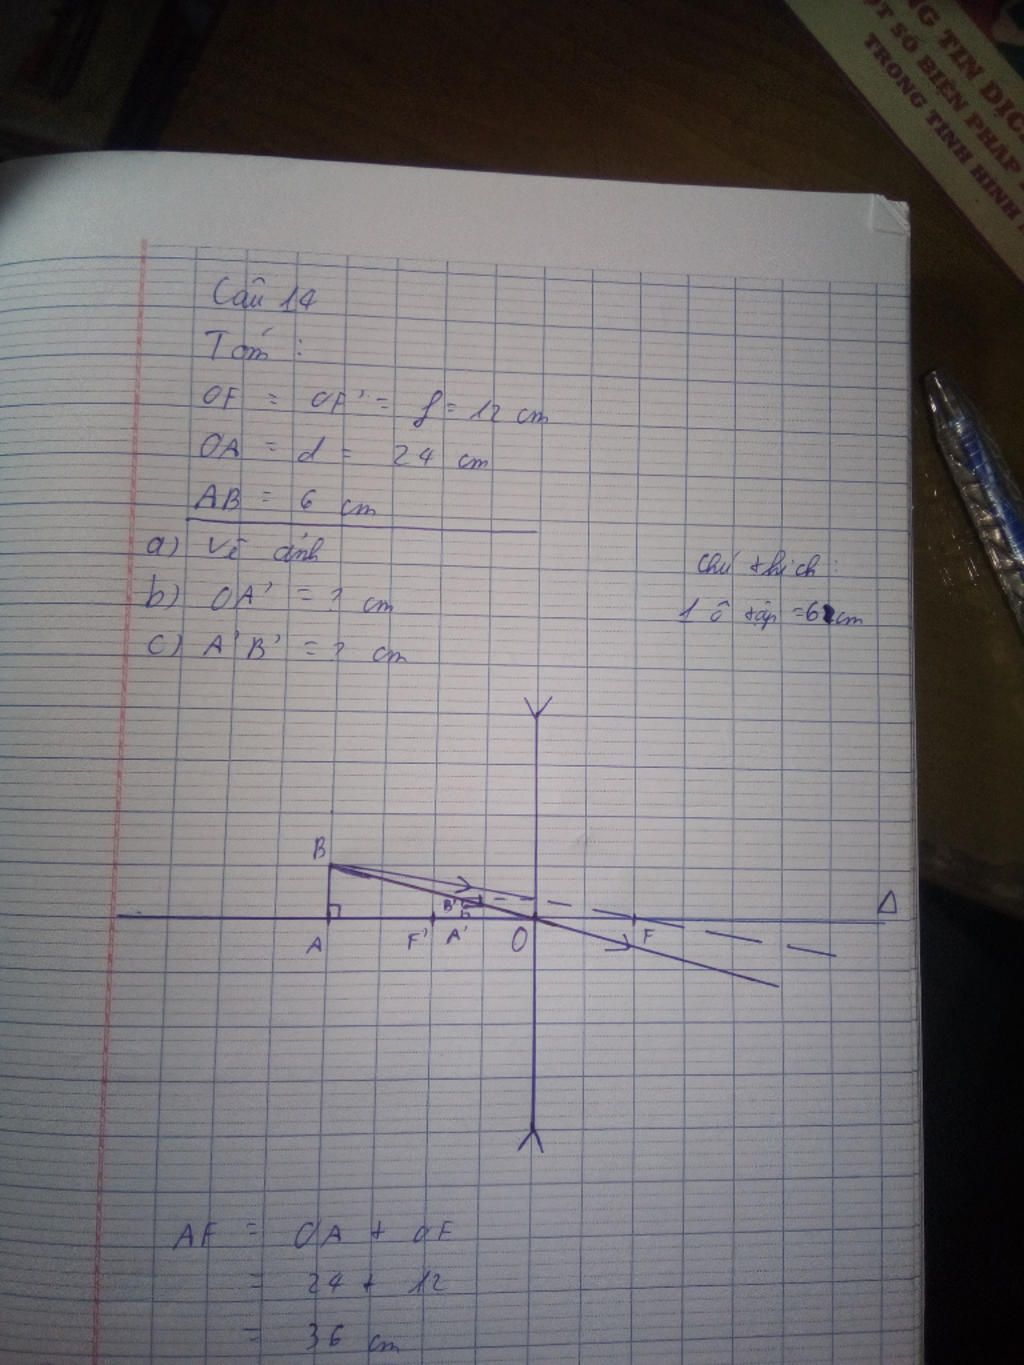 NG TIN DỊC
ỘT SỐ BIỆN PHÁP
TRONG TÌNH HÌNH
Câu 14
Tóm :
OF = OF' = f = 12 cm
OA = d = 24 cm
AB = 6 cm
a) Vẽ ảnh
b) OA' = ? cm
c) A'B' = ? cm
Chú thích :
1 ô tập = 6 cm
B
B'
Δ
A
F'
A'
O
F
AF = OA + OF
= 24 + 12
= 36 cm